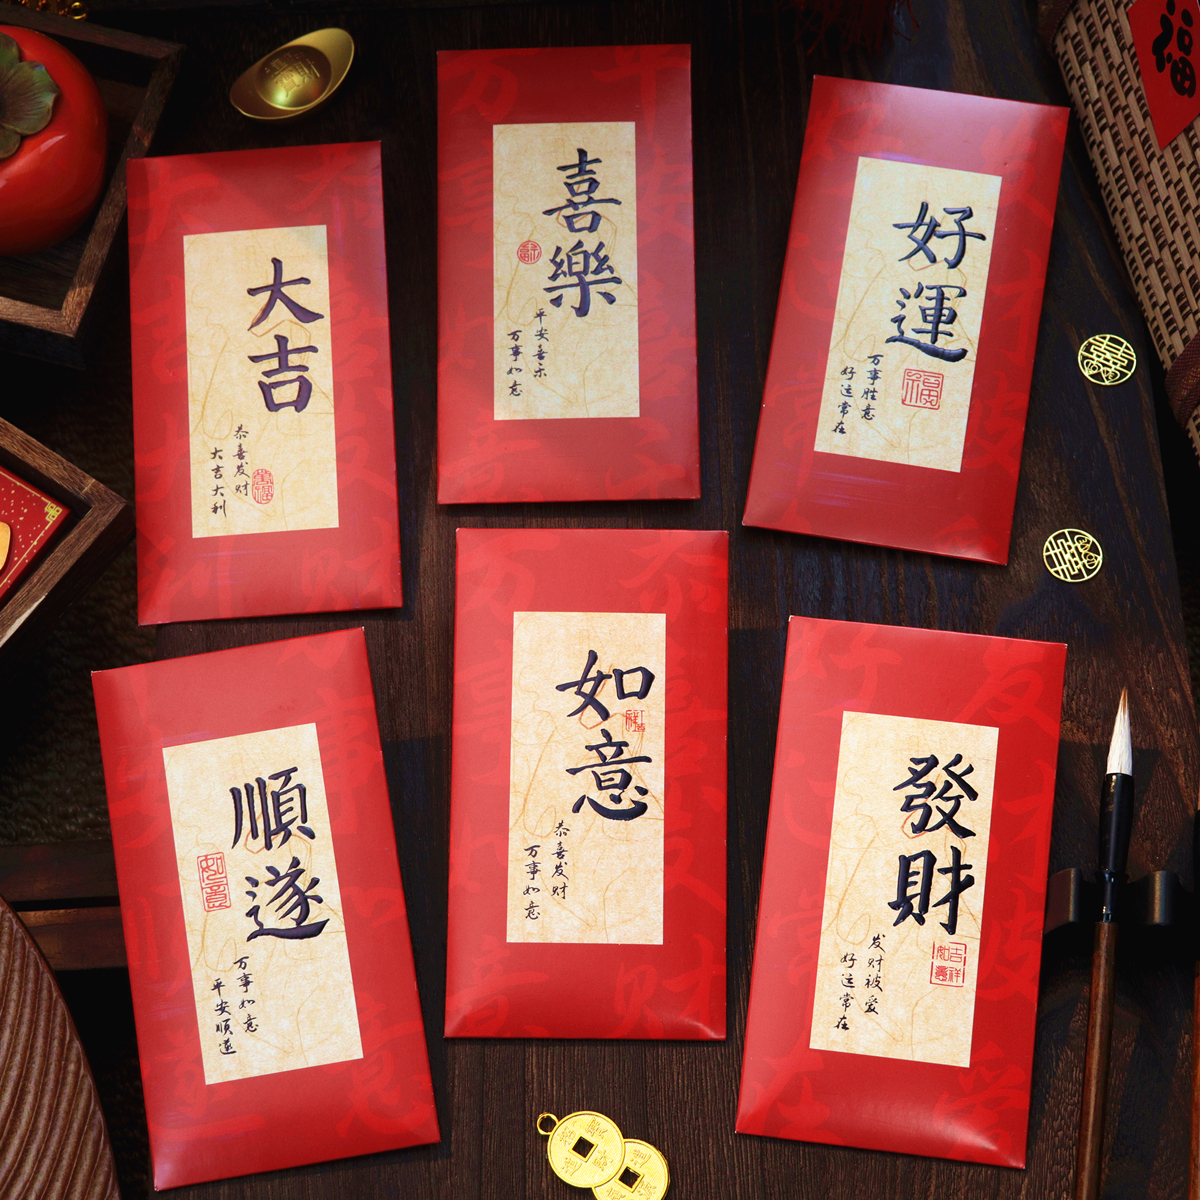 大吉
恭喜发财
大吉大利
喜樂
平安喜乐
万事如意
好運
万事胜意
好运常在
福
福
順遂
万事如意
平安順遂
如意
如意
恭喜发财
万事如意
發財
发财被爱
好运常在
吉祥
如意